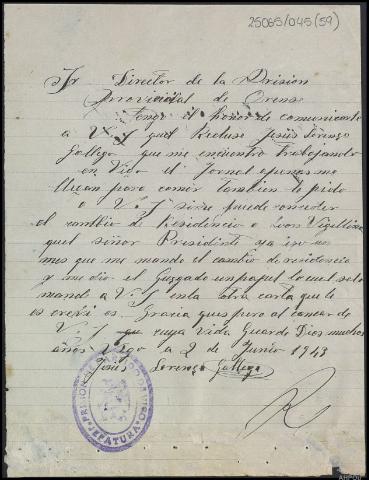 25065/045(59)
Sr Director de la Prision
Provincial de Orense
Tengo el honor de comunicarle
a V.S que el Recluso Jesús Lorenzo
Gallego que me encuentro trabajando
en Vido el Jornal apenas me
llecan para comer tambien le pido
a V.S si me puede conceder
el cambio de Residencia a
quel señor Presidente ya iso un
mes que me mando el cambio de residencia
y me dio el Guzgado un papel lo cual selo
mando a V.S esta otra carta que le
es Gracia que spero al cancar de
V.S cuya vida Guarde Dios muchos
años Vigo a 2 de Junio 1943
Jesus Lorenzo Gallego
PRISION DE PARTIDO DE VIGO
JEFATURA
R
AHPOU